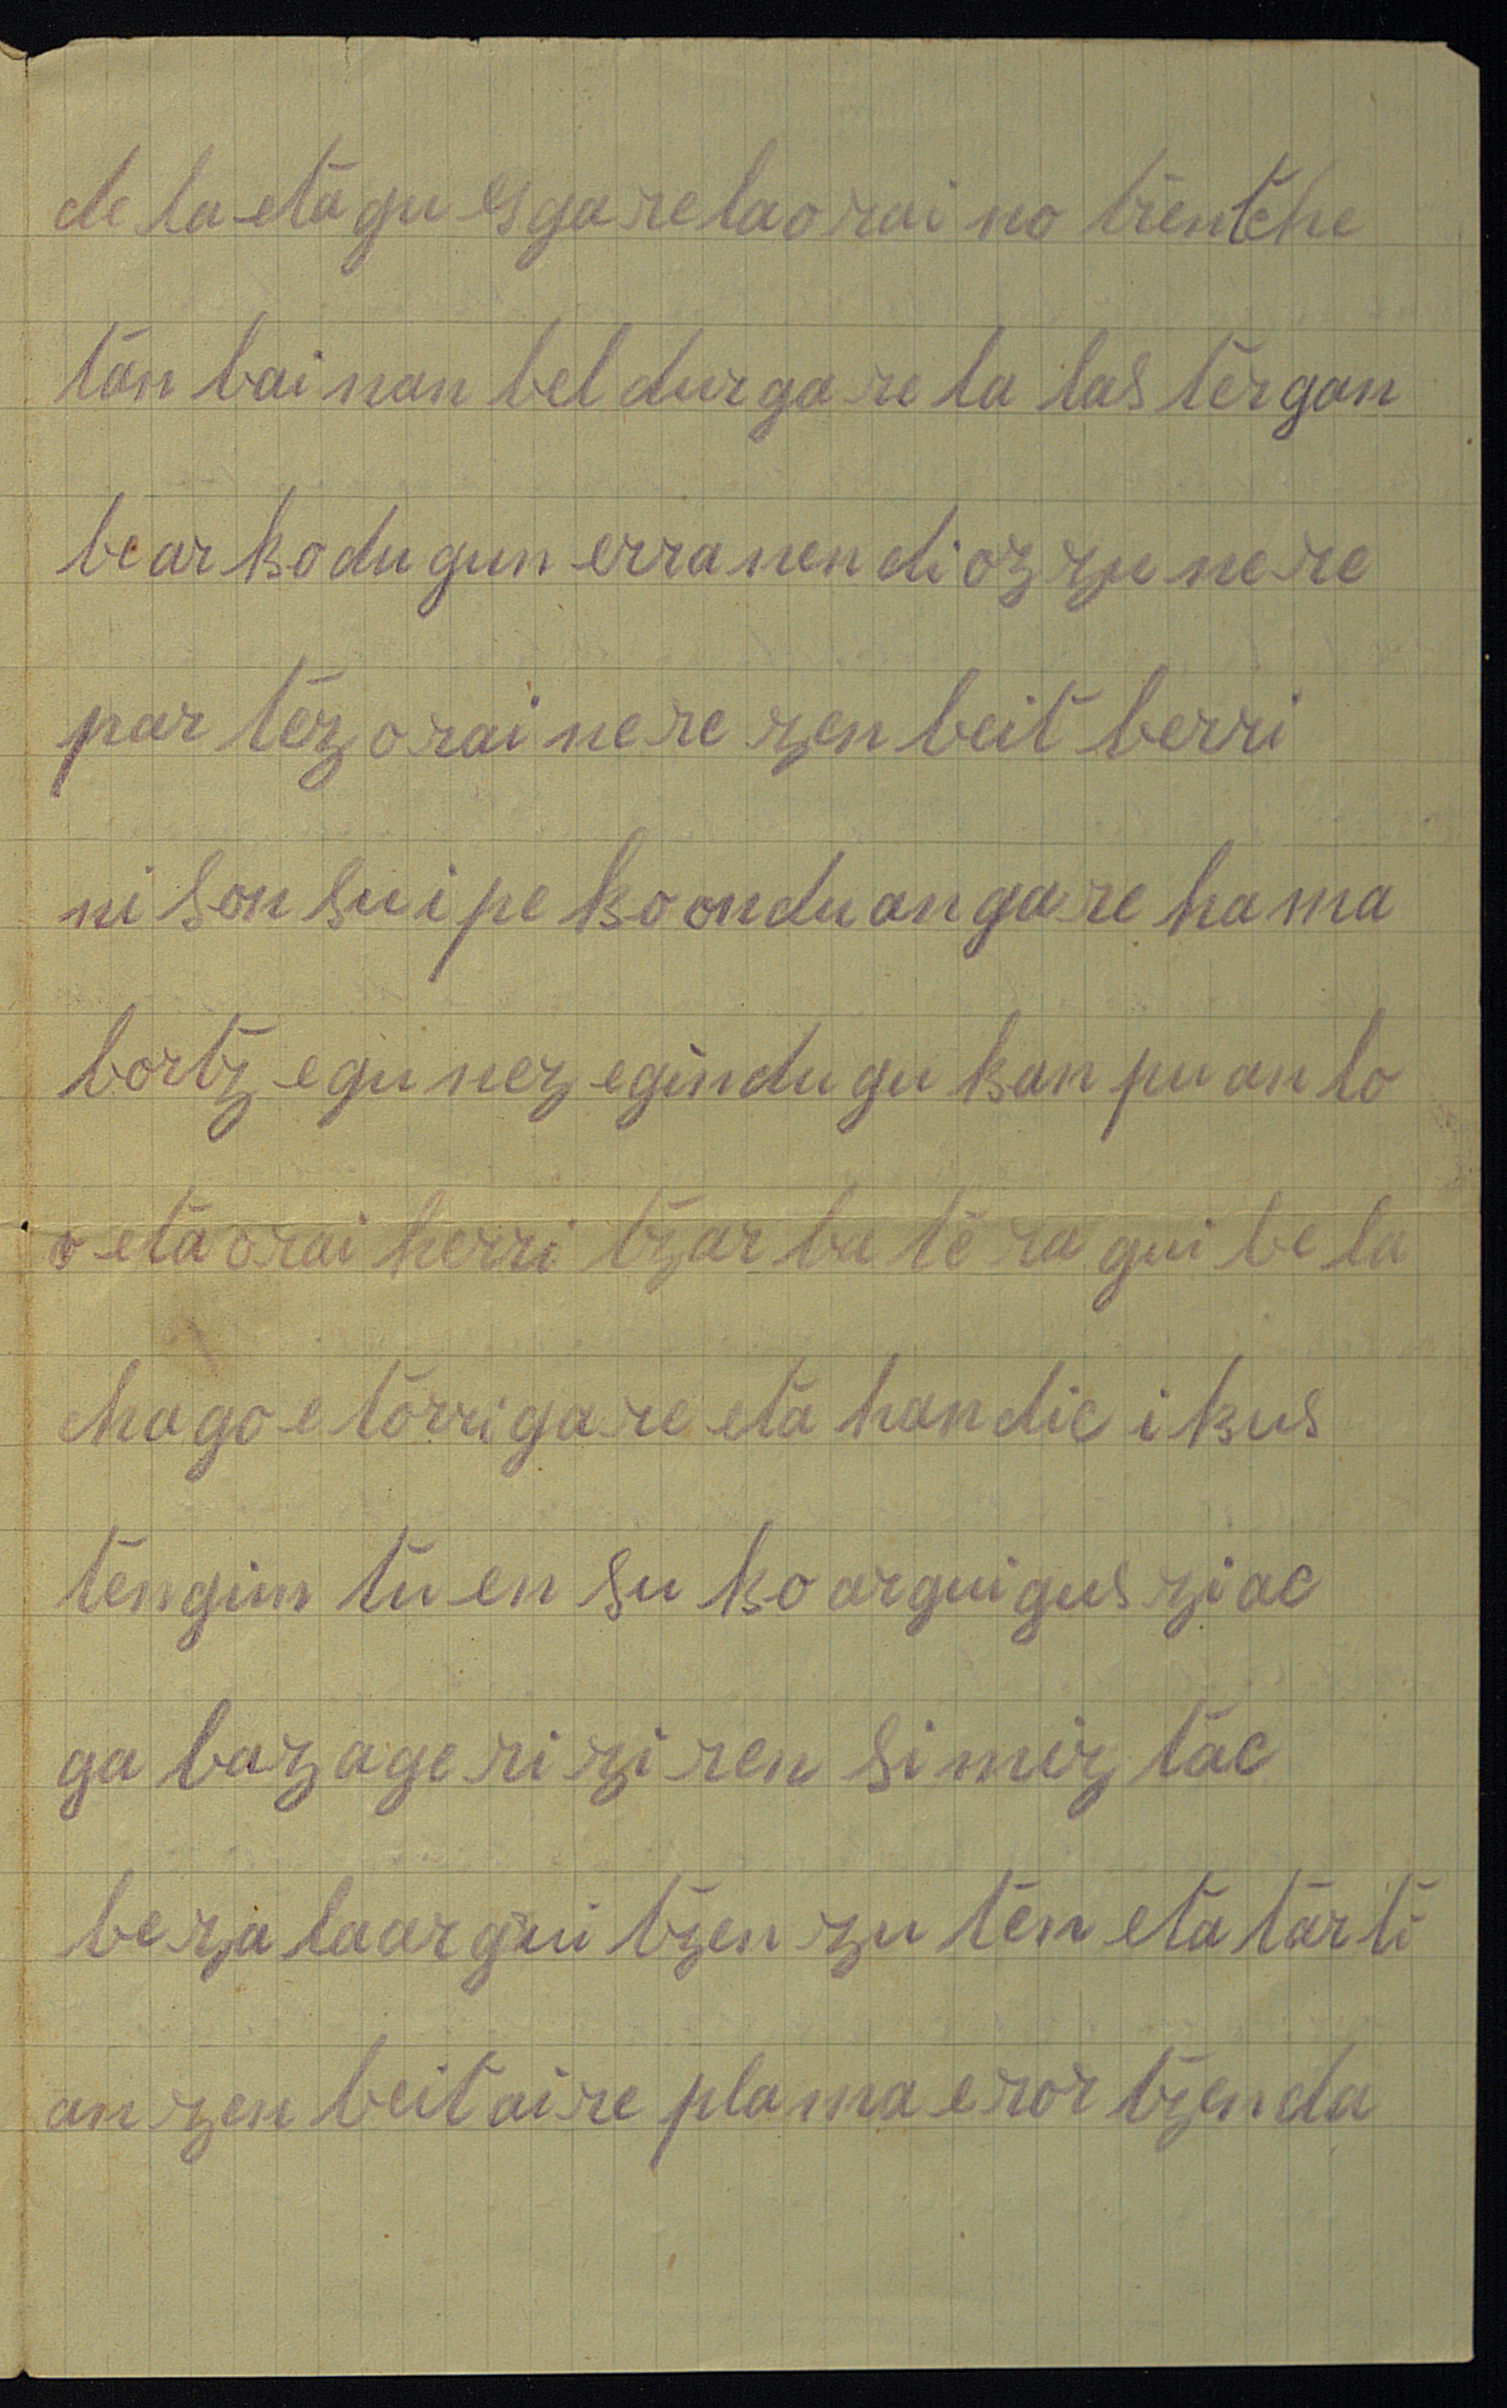 dela eta gu esgarela orai no trenche
tan bainan beldurgarela laster gan
bearko dugun erranen diozzu nere
partez orai nere zenbeit berri
ni sonsuipeko onduan gare hama
bortz egunez egin dugu kanpuan lo
o eta orai herri tzar batera guibela
chago etorri gare eta handic ikus
ten gintuen suko argui gusziac
gabaz ageri ziren simiztac
bezala arguitzen zuten eta tarti
an zenbeit aireplama erortzen da